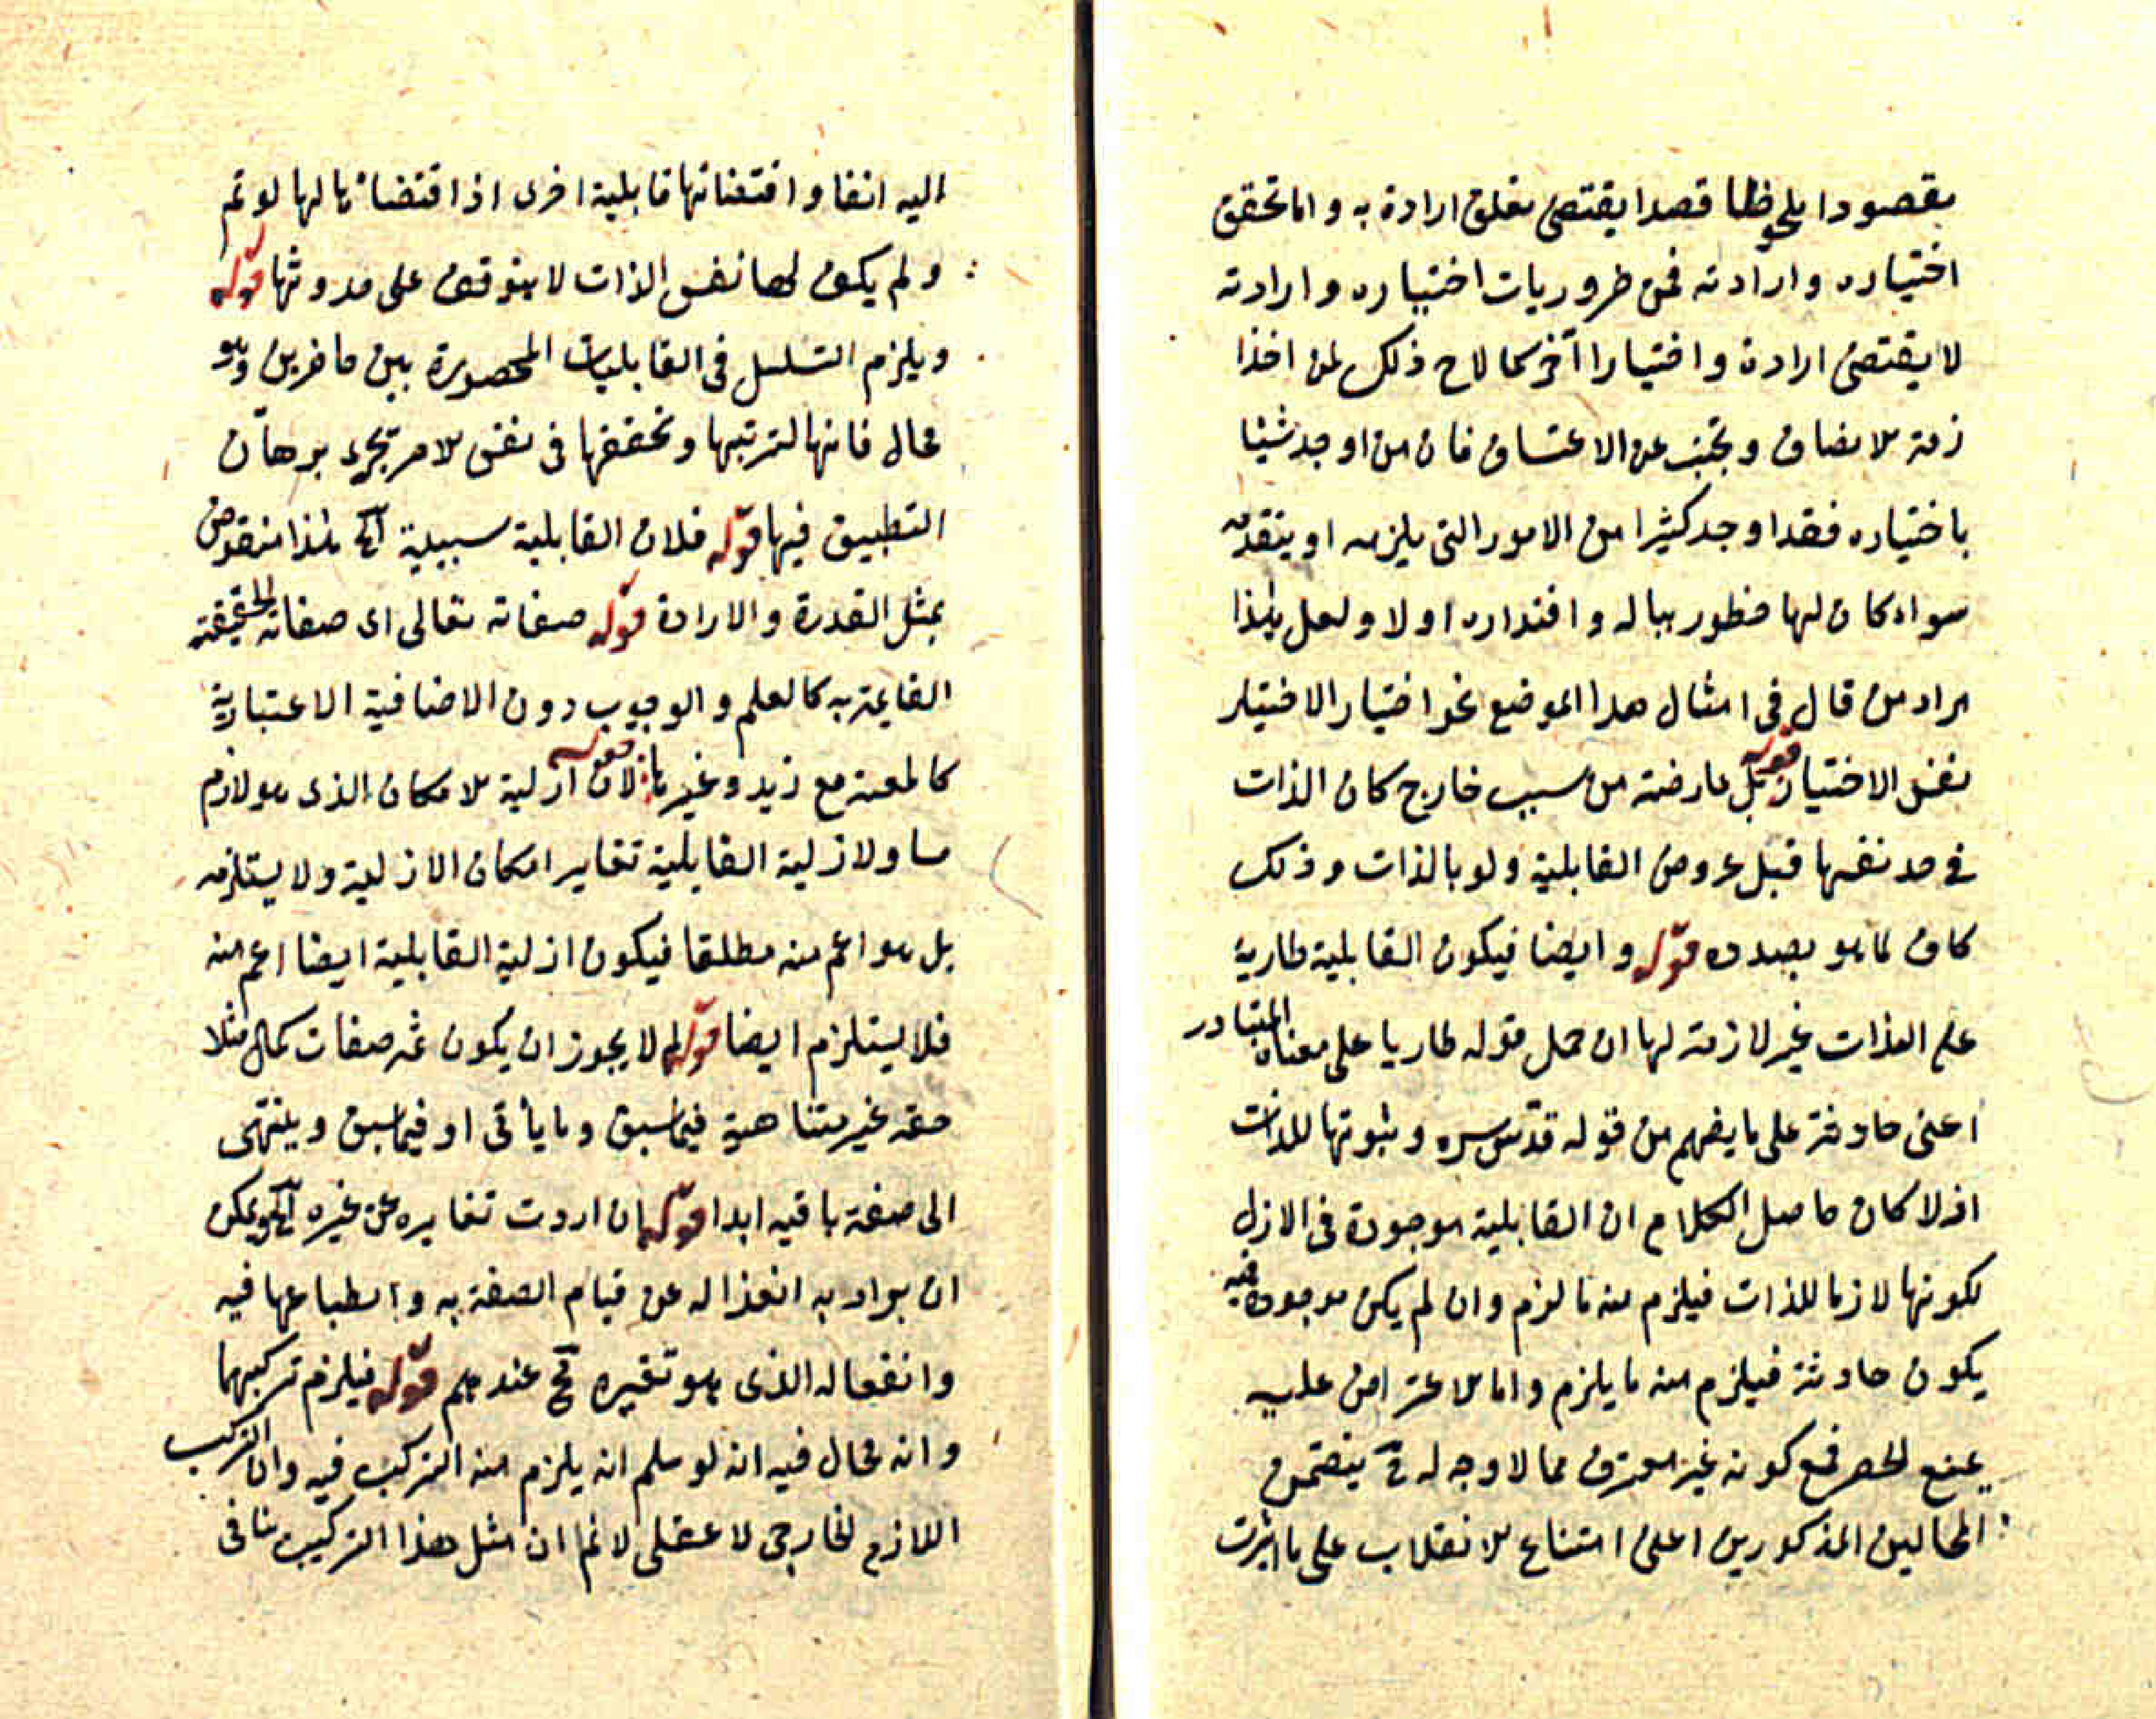 مقصودا ملحوظا قصدا يقتضى تعلق ارادة به واما تحقق
اختياره وارادته فمن ضروريات اختياره وارادته
لا يقتضى ارادة واختيارا آخر كما لاح ذلك لمن اخذا
زمة الانصاف وتجنب عن الاعتساف فان من اوجد شيئا
باختياره فقد اوجد كثيرا من الامور التى يلزمه او يتقدمه
سواء كان لها خطور بباله واقتداره اولا ولعل هذا
مراد من قال فى امثال هذا الموضع نحو اختيار الاختيار
نفس الاختيار قوله بل عارضته من سبب خارج كان الذات
فى حد نفسها قبل عروض القابلية ولو بالذات وذلك
كاف لما هو بصدده قوله وايضا فيكون القابلية طارية
على الذات غير لازمة لها ان حمل قوله طاريا على معناه المتبادر
اعنى حادثة على ما يفهم من قوله قدس سره وثبوتها للذات
اذ لا كان حاصل الكلام ان القابلية موجودة فى الازل
لكونها لازما للذات فيلزم منه ما لزم وان لم يكن موجودة فيه
يكون حادثة فيلزم منه ما يلزم واما الاعتراض عليه
بمنع الحصر فمع كونه غير معترف مما لا وجه له
المحالين المذكورين اعنى امتناع الانقلاب على ما اشرت
اليه انفا واقتضائها قابلية اخرى اذ اقتضائها لها لو تم
ولم يكف لها نفس الذات لا يتوقف على حدوثها قوله
ويلزم التسلسل فى القابليات المحصورة بين حاضرين وهو
محال فانها لترتبها وتحققها فى نفس الامر تجرى برهان
التطبيق فيها قوله فلان القابلية سببية الخ هذا منقوض
بمثل القدرة والارادة قوله صفاته تعالى اى صفاته الحقيقية
القايمة به كالعلم والوجوب دون الاضافية الاعتبارية
كالمعية مع زيد وغيرها قوله لان ازلية الامكان الذى هو لازم
مساو لازلية القابلية تغاير امكان الازلية ولا يستلزمه
بل هو اعم منه مطلقا فيكون ازلية القابلية ايضا اعم منه
فلا يستلزم ايضا قوله لم لا يجوز ان يكون ثمه صفات كمال مثلا
حقه غير متناهية فيما سبق وما يأتى او فيما سبق وينتهى
الى صفة باقيه ابدا قوله ان اردت تغايره عن غيره الخ ويمكن
ان يراد به انعزاله عن قيام الصفة به وانطباعها فيه
وانفعاله الذى هو تغيره مح عندهم قوله فيلزم تركبهما
وانه محال فيه انه لو سلم انه يلزم منه التركيب فيه وان التركيب
اللازم خارجى لا عقلى لا نم ان مثل هذا التركيب ينافى